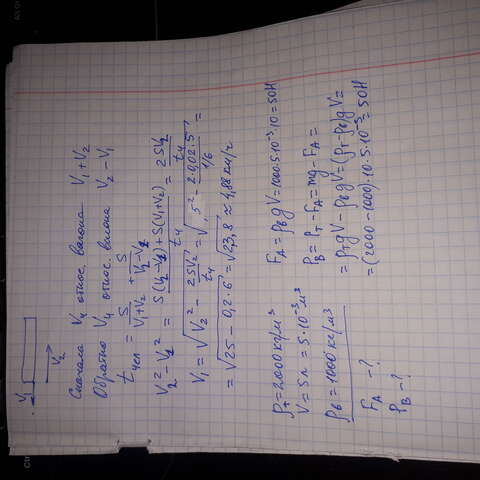 V₁
V₂
Сначала Vч относ. вагона V₁+V₂
Обратно Vч относ. вагона V₂-V₁
tчел = S/(V₁+V₂) + S/(V₂-V₁)
V₂²-V₁² = (S(V₂-V₁)+S(V₁+V₂))/tч = 2SV₂/tч
V₁ = √(V₂² - 2SV₂/tч) = √(5² - 2·0,02·5/(1/6)) =
= √(25-0,2·6) = √23,8 ≈ 4,88 км/ч
ρт = 2000 кг/м³
V = 5л = 5·10⁻³ м³
ρв = 1000 кг/м³
FA -?
PB -?
FA = ρв g V = 1000·5·10⁻³·10 = 50Н
PB = PT - FA = mg - FA =
= ρт g V - ρв g V = (ρт-ρв) g V =
= (2000-1000)·10·5·10⁻³ = 50Н